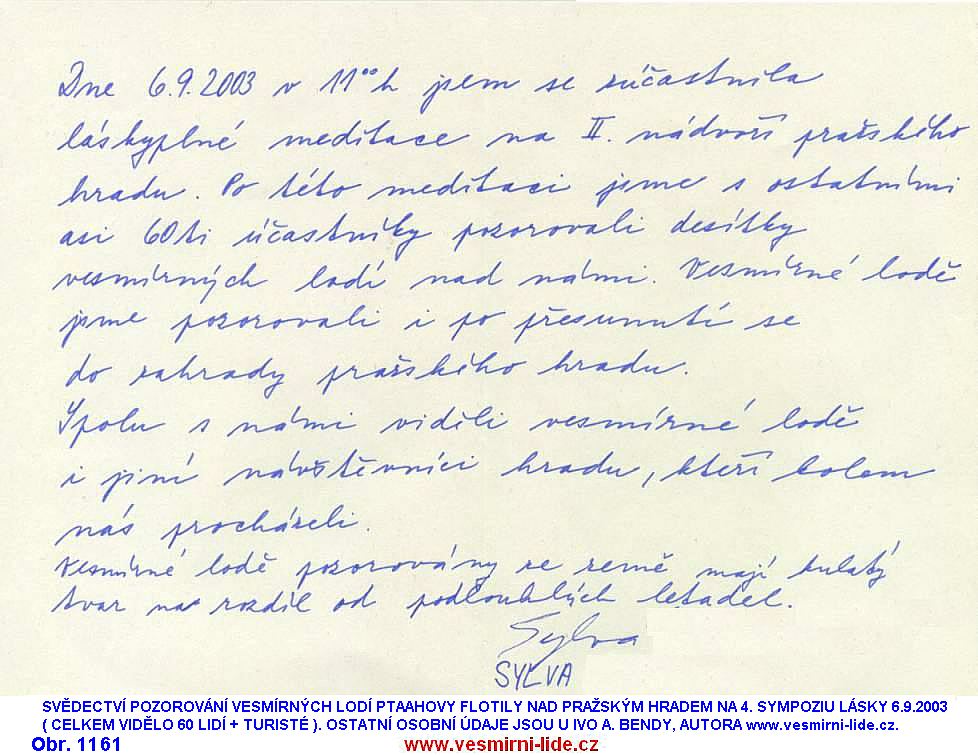 Dne 6.9.2003 v 11⁰⁰h jsem se zúčastnila
láskyplné meditace na II. nádvoří pražského
hradu. Po této meditaci jsme s ostatními
asi 60ti účastníky pozorovali desítky
vesmírných lodí nad námi. Vesmírné lodě
jsme pozorovali i po přesunutí se
do zahrady pražského hradu.
Spolu s námi viděli vesmírné lodě
i jiní návštěvníci hradu, kteří kolem
nás procházeli.
Vesmírné lodě pozorovány ze země mají kulatý
tvar na rozdíl od podlouhlých letadel.
Sylva
SYLVA
SVĚDECTVÍ POZOROVÁNÍ VESMÍRNÝCH LODÍ PTAAHOVY FLOTILY NAD PRAŽSKÝM HRADEM NA 4. SYMPOZIU LÁSKY 6.9.2003
( CELKEM VIDĚLO 60 LIDÍ + TURISTÉ ). OSTATNÍ OSOBNÍ ÚDAJE JSOU U IVO A. BENDY, AUTORA www.vesmirni-lide.cz.
Obr. 1161 www.vesmirni-lide.cz